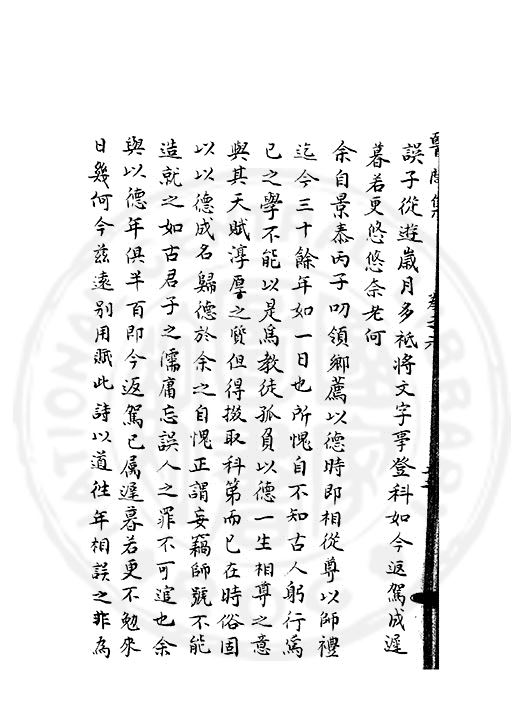 誤子從遊歲月多祗將文字事登科如今返駕成遲
暮若更悠悠奈老何
余自景泰丙子叨領鄉薦以德時即相從尊以師禮
迄今三十餘年如一日也所愧自不知古人躬行為
已之學不能以是為教徒孤負以德一生相尊之意
與其天賦淳厚之質但得掇取科第而已在時俗固
以以德成名歸德於余之自愧正謂妄竊師號不能
造就之如古君子之儒腐忘誤人之罪不可逭也余
與以德年俱半百即今返駕已属遲暮若更不勉來
日幾何今玆遠別用賦此詩以道徃年相誤之非為